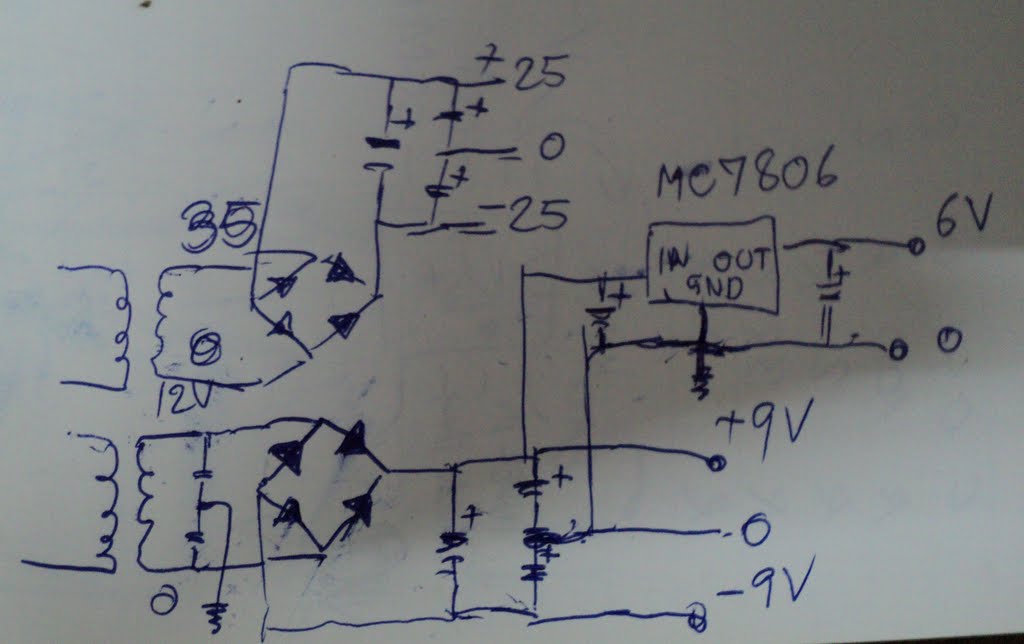 + 25
0
- 25
35
0
12V
MC7806
IN OUT
GND
6V
0
+9V
-0
-9V
0